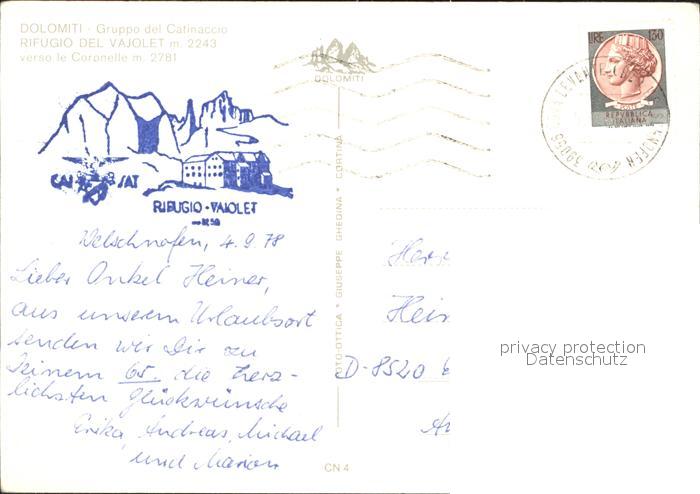 DOLOMITI - Gruppo del Catinaccio
RIFUGIO DEL VAJOLET m. 2243
verso le Coronelle m. 2781
DOLOMITI
LIRE 130
POSTE
REPVBBLICA
ITALIANA
39056
CAI SAT
RIFUGIO - VAJOLET
Welschnofen, 4.9.78
Lieber Onkel Heiner,
aus unserem Urlaubsort
senden wir Dir zu
Deinem 65. die herz-
lichsten Glückwünsche
Erika, Andreas, Michael
und Marion
FOTO-OTTICA * GIUSEPPE GHEDINA * CORTINA
Herr
Hein
D-8520
privacy protection
Datenschutz
CN 4